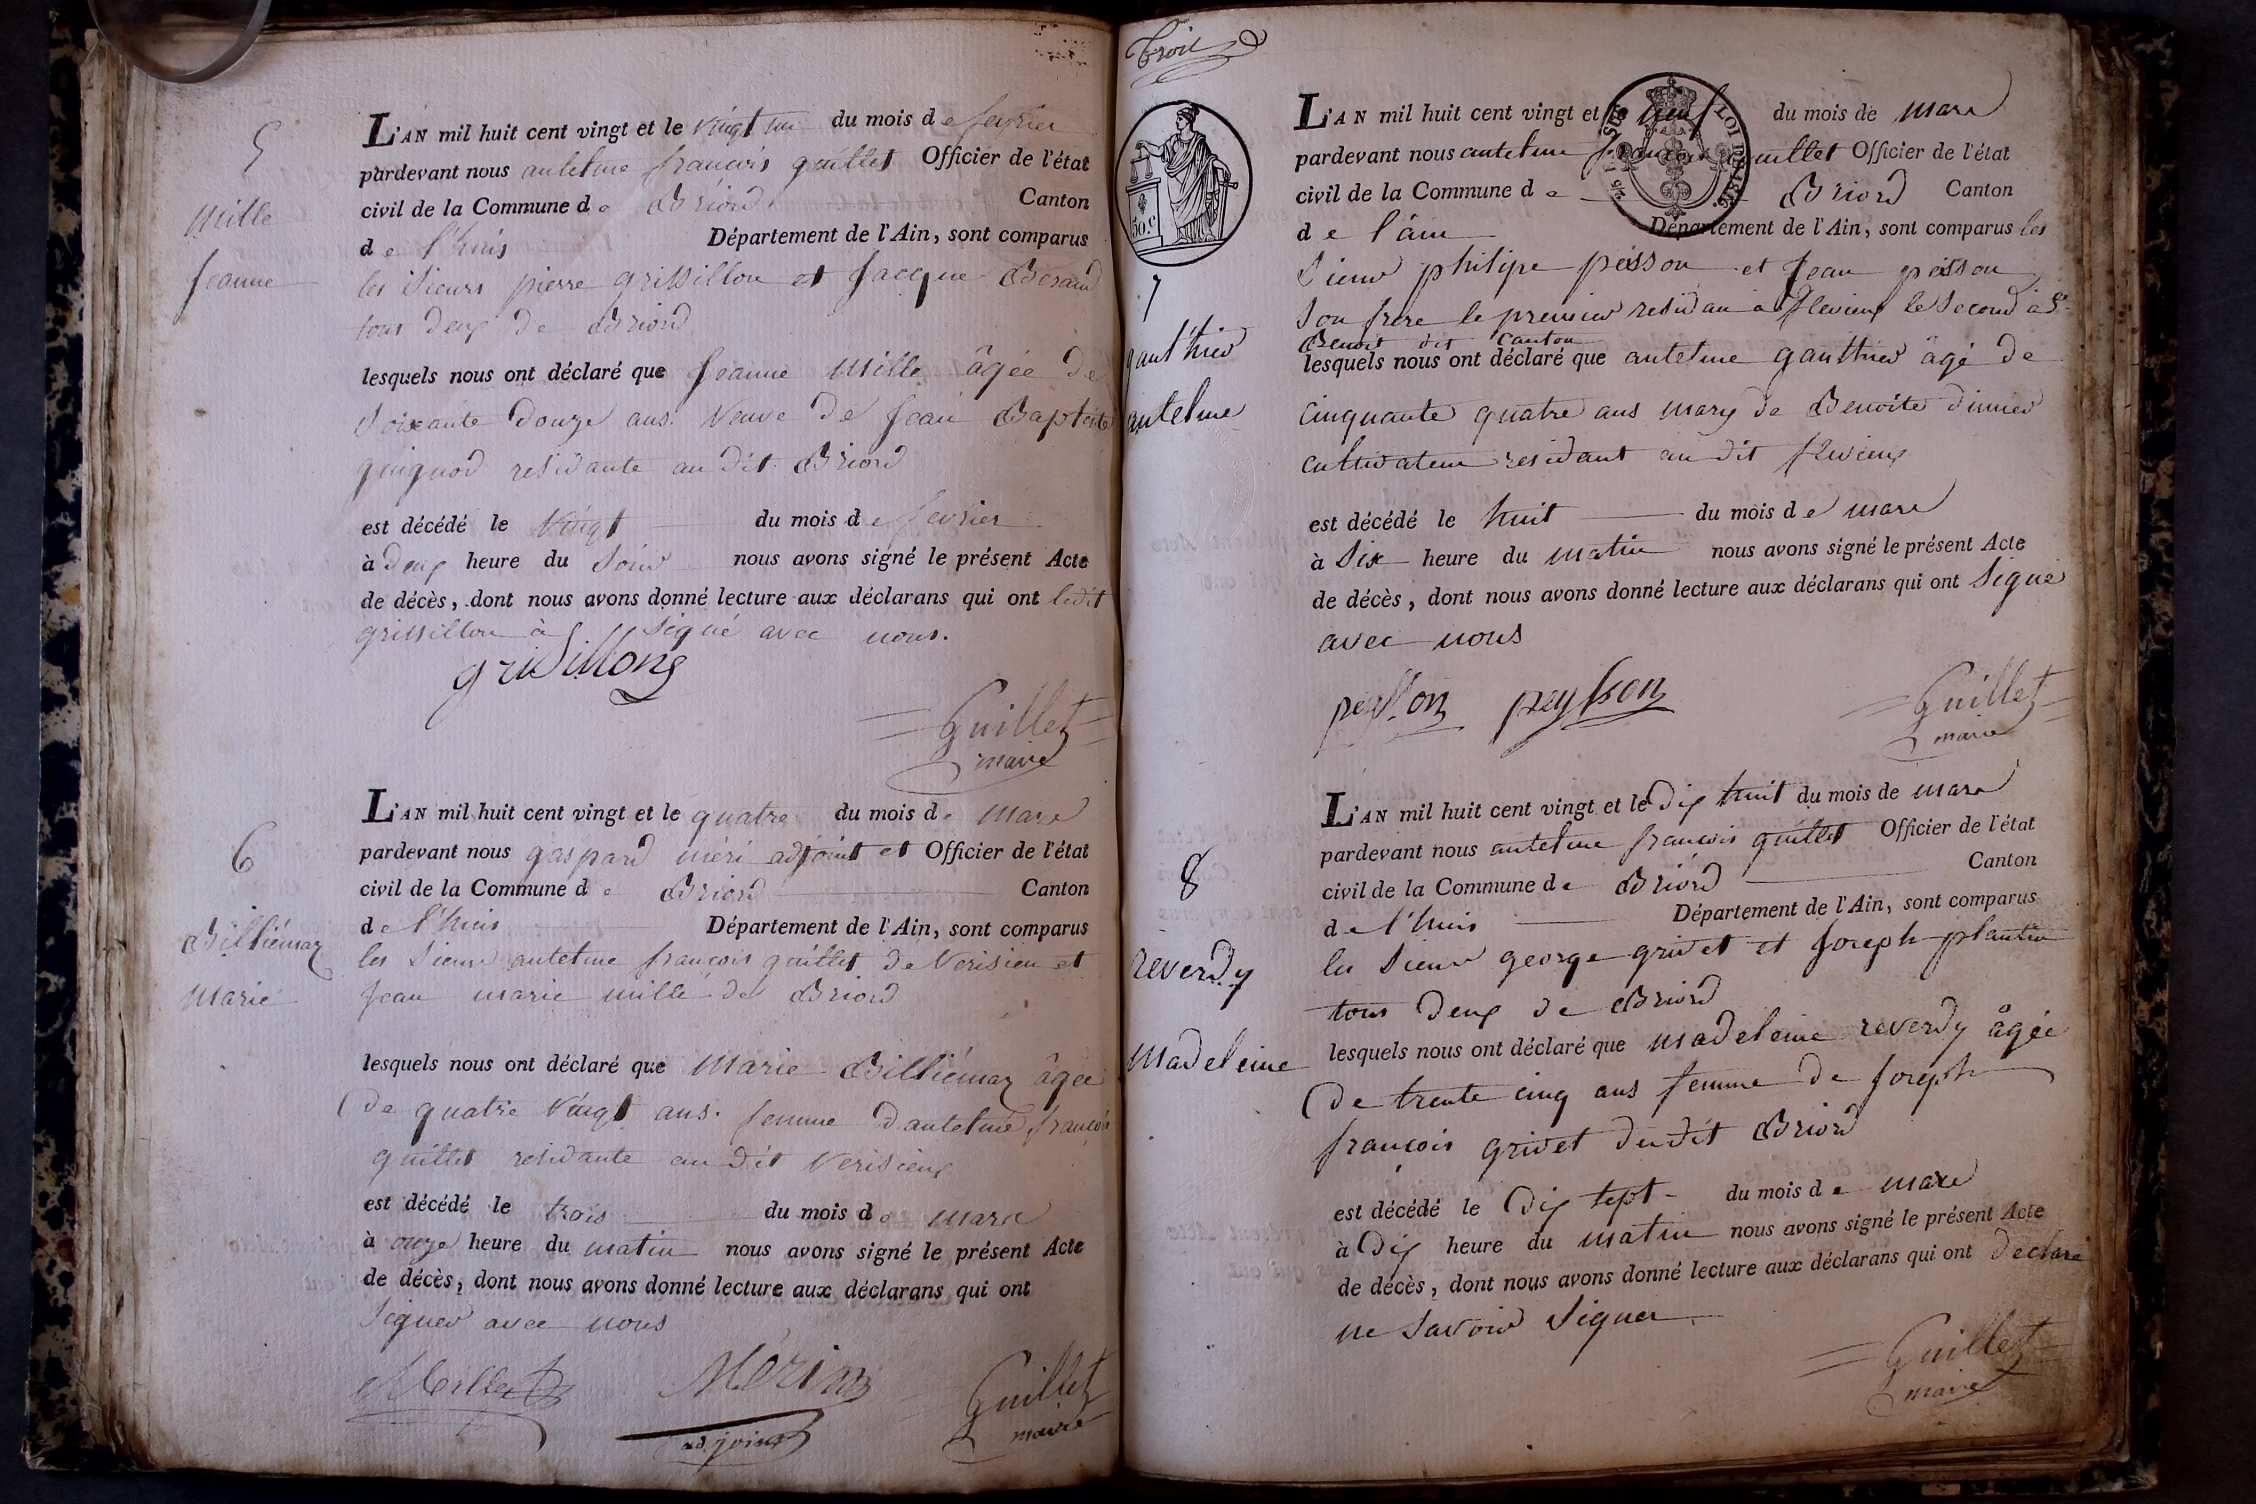 5
Mille
Jeanne
L'AN mil huit cent vingt et le vingt un du mois de fevrier
pardevant nous antelme francois guillet Officier de l'état
civil de la Commune de Briord Canton
de l'huis Département de l'Ain, sont comparus
les Sieurs pierre grissillon et Jacque Beraud
tous deux de Briord
lesquels nous ont déclaré que Jeanne Mille âgée de
Soixante douze ans. Veuve de Jean Baptiste
quiquod residante au dit Briord
est décédé le vingt du mois de fevrier
à deux heure du Soir nous avons signé le présent Acte
de décès, dont nous avons donné lecture aux déclarans qui ont ledit
grissillon à Signé avec nous.
grisillong
Guillet
maire
6
Billiémaz
marie
L'AN mil huit cent vingt et le quatre du mois de mars
pardevant nous gaspard méri adjoint et Officier de l'état
civil de la Commune de Briord Canton
de l'huis Département de l'Ain, sont comparus
les Sieurs antelme françois guillet de Verisieu et
Jean marie mille de Briord
lesquels nous ont déclaré que Marie Billiémaz âgée
de quatre vingt ans. femme d'antelme françois
guillet residante au dit Verisieux
est décédé le trois du mois de mars
à onze heure du matin nous avons signé le présent Acte
de décès, dont nous avons donné lecture aux déclarans qui ont
Signer avec nous
Mille
Mérin
adjoint
Guillet
maire
Trois
50.c
LOI DE 1816
7
gauthier
antelme
L'AN mil huit cent vingt et le neuf du mois de mars
pardevant nous antelme francois guillet Officier de l'état
civil de la Commune de Briord Canton
de l'âin Département de l'Ain, sont comparus les
Sieur philipe peisson et Jean peisson
Son frere le premier residan à flevieux le Second à St
Benoit dit Canton
lesquels nous ont déclaré que antelme gauthier âgé de
cinquante quatre ans mary de Benoite dimier
cultivateur residant au dit flevieux
est décédé le huit du mois de mars
à Six heure du matin nous avons signé le présent Acte
de décès, dont nous avons donné lecture aux déclarans qui ont Signé
avec nous
peysson peysson
Guillet
maire
8
reverdy
Madeleine
L'AN mil huit cent vingt et le dix huit du mois de mars
pardevant nous antelme francois guillet Officier de l'état
civil de la Commune de Briord Canton
de l'huis Département de l'Ain, sont comparus
les Sieur george grivet et Joseph plantin
tous deux de Briord
lesquels nous ont déclaré que madeleine reverdy âgée
de trente cinq ans femme de Joseph
francois grivet dudit Briord
est décédé le dix sept du mois de mars
à dix heure du matin nous avons signé le présent Acte
de décès, dont nous avons donné lecture aux déclarans qui ont declaré
ne Savoir Signer
Guillet
maire